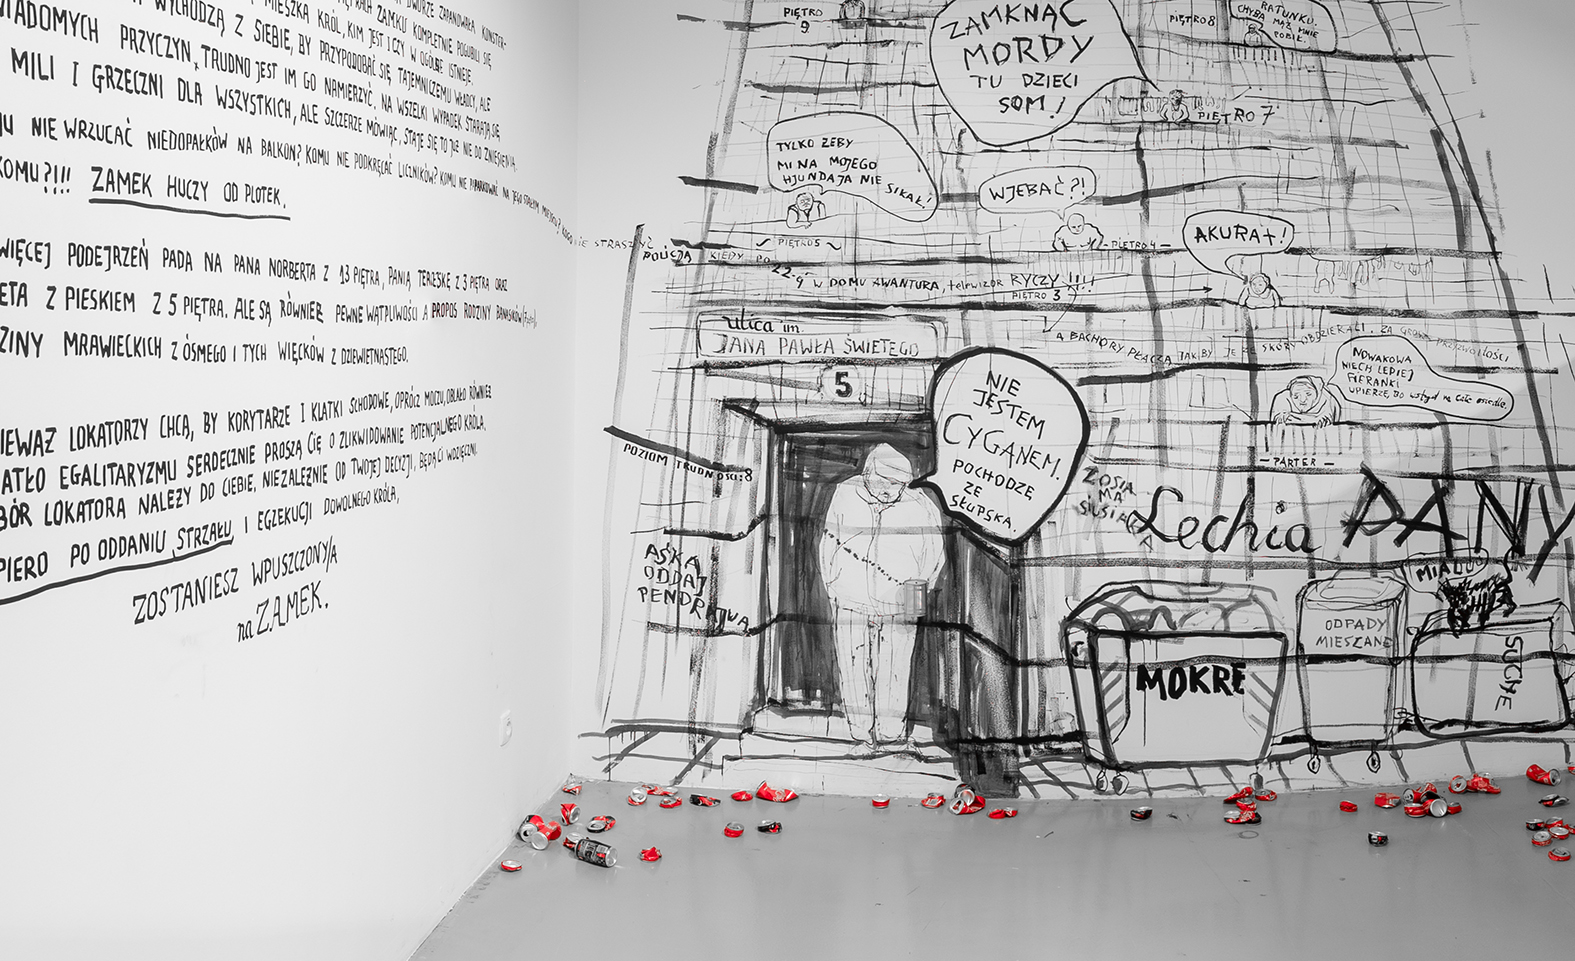 DWORZE ZAPANOWAŁA KONSTER-
ZAMKU KOMPLETNIE POGUBILI SIĘ,
MIESZKA KRÓL, KIM JEST I CZY W OGÓLE ISTNIEJE.
WYCHODZĄ Z SIEBIE, BY PRZYPODOBAĆ SIĘ TAJEMNICZEMU WŁADCY, ALE
WIADOMYCH PRZYCZYN, TRUDNO JEST IM GO NAMIERZYĆ. NA WSZELKI WYPADEK STARAJĄ SIĘ
MILI I GRZECZNI DLA WSZYSTKICH, ALE SZCZERZE MÓWIĄC, STAJE SIĘ TO JUŻ NIE DO ZNIESIENIA.
MU NIE WRZUCAĆ NIEDOPAŁKÓW NA BALKON? KOMU NIE PODKRĘCAĆ LICZNIKÓW? KOMU NIE PARKOWAĆ NA JEGO STAŁYM MIEJSCU? KOGO NIE STRASZYĆ
POLICJĄ
KOMU?!!! ZAMEK HUCZY OD PLOTEK.
WIĘCEJ PODEJRZEŃ PADA NA PANA NORBERTA Z 13 PIĘTRA, PANIĄ TERESKĘ Z 3 PIĘTRA ORAZ
ETA Z PIESKIEM Z 5 PIĘTRA. ALE SĄ RÓWNIEŻ PEWNE WĄTPLIWOŚCI A PROPOS RODZINY BANASIKÓW
ZINY MRAWIECKICH Z ÓSMEGO I TYCH WIĘCKÓW Z DZIEWIĘTNASTEGO.
IEWAŻ LOKATORZY CHCĄ, BY KORYTARZE I KLATKI SCHODOWE, OPRÓCZ MOCZU, OBLAŁO RÓWNIEŻ
ATŁO EGALITARYZMU SERDECZNIE PROSZĄ CIĘ O ZLIKWIDOWANIE POTENCJALNEGO KRÓLA.
BÓR LOKATORA NALEŻY DO CIEBIE, NIEZALEŻNIE OD TWOJEJ DECYZJI, BĘDĄ CI WDZIĘCZNI.
PIERO PO ODDANIU STRZAŁU I EGZEKUCJI DOWOLNEGO KRÓLA,
ZOSTANIESZ WPUSZCZONY/A
na ZAMEK.
PIĘTRO
9
ZAMKNĄĆ
MORDY
TU DZIECI
SOM!
PIĘTRO 8
RATUNKU.
CHYBA MĄŻ MNIE
POBIŁ.
PIĘTRO 7
TYLKO ŻEBY
MI NA MOJEGO
HJUNDAJA NIE SIKAŁ!
PIĘTRO 5
WJEBAĆ?!
PIĘTRO 4
AKURAT!
KIEDY PO
22.45 W DOMU AWANTURA, telewizor RYCZY !!!
PIĘTRO 3
A BACHORY PŁACZĄ JAKBY JE ZE SKÓRY OBDZIERALI.
NOWAKOWA
NIECH LEPIEJ
FIRANKI
UPIERZE, BO wstyd na całe osiedle.
PARTER
ulica im.
JANA PAWŁA ŚWIĘTEGO
5
NIE
JESTEM
CYGANEM.
POCHODZĘ
ZE
SŁUPSKA.
POZIOM TRUDNOŚCI: 8
AŚKA
ODDAJ
PENDRAJWA
ZOSIA
MA
SIUSIAKA
Lechia PANY
MIAU
MOKRE
ODPADY
MIESZANE
SUCHE